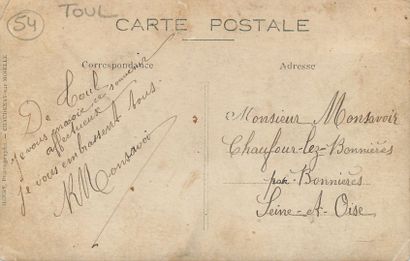 54
TOUL
CARTE POSTALE
Correspondance
Adresse
De Toul
je vous envoie ce souvenir
affectueux
je vous embrassent tous.
Monsavoir
Monsieur Monsavoir
Chaufour-lez-Bonnières
par Bonnières
Seine-et-Oise